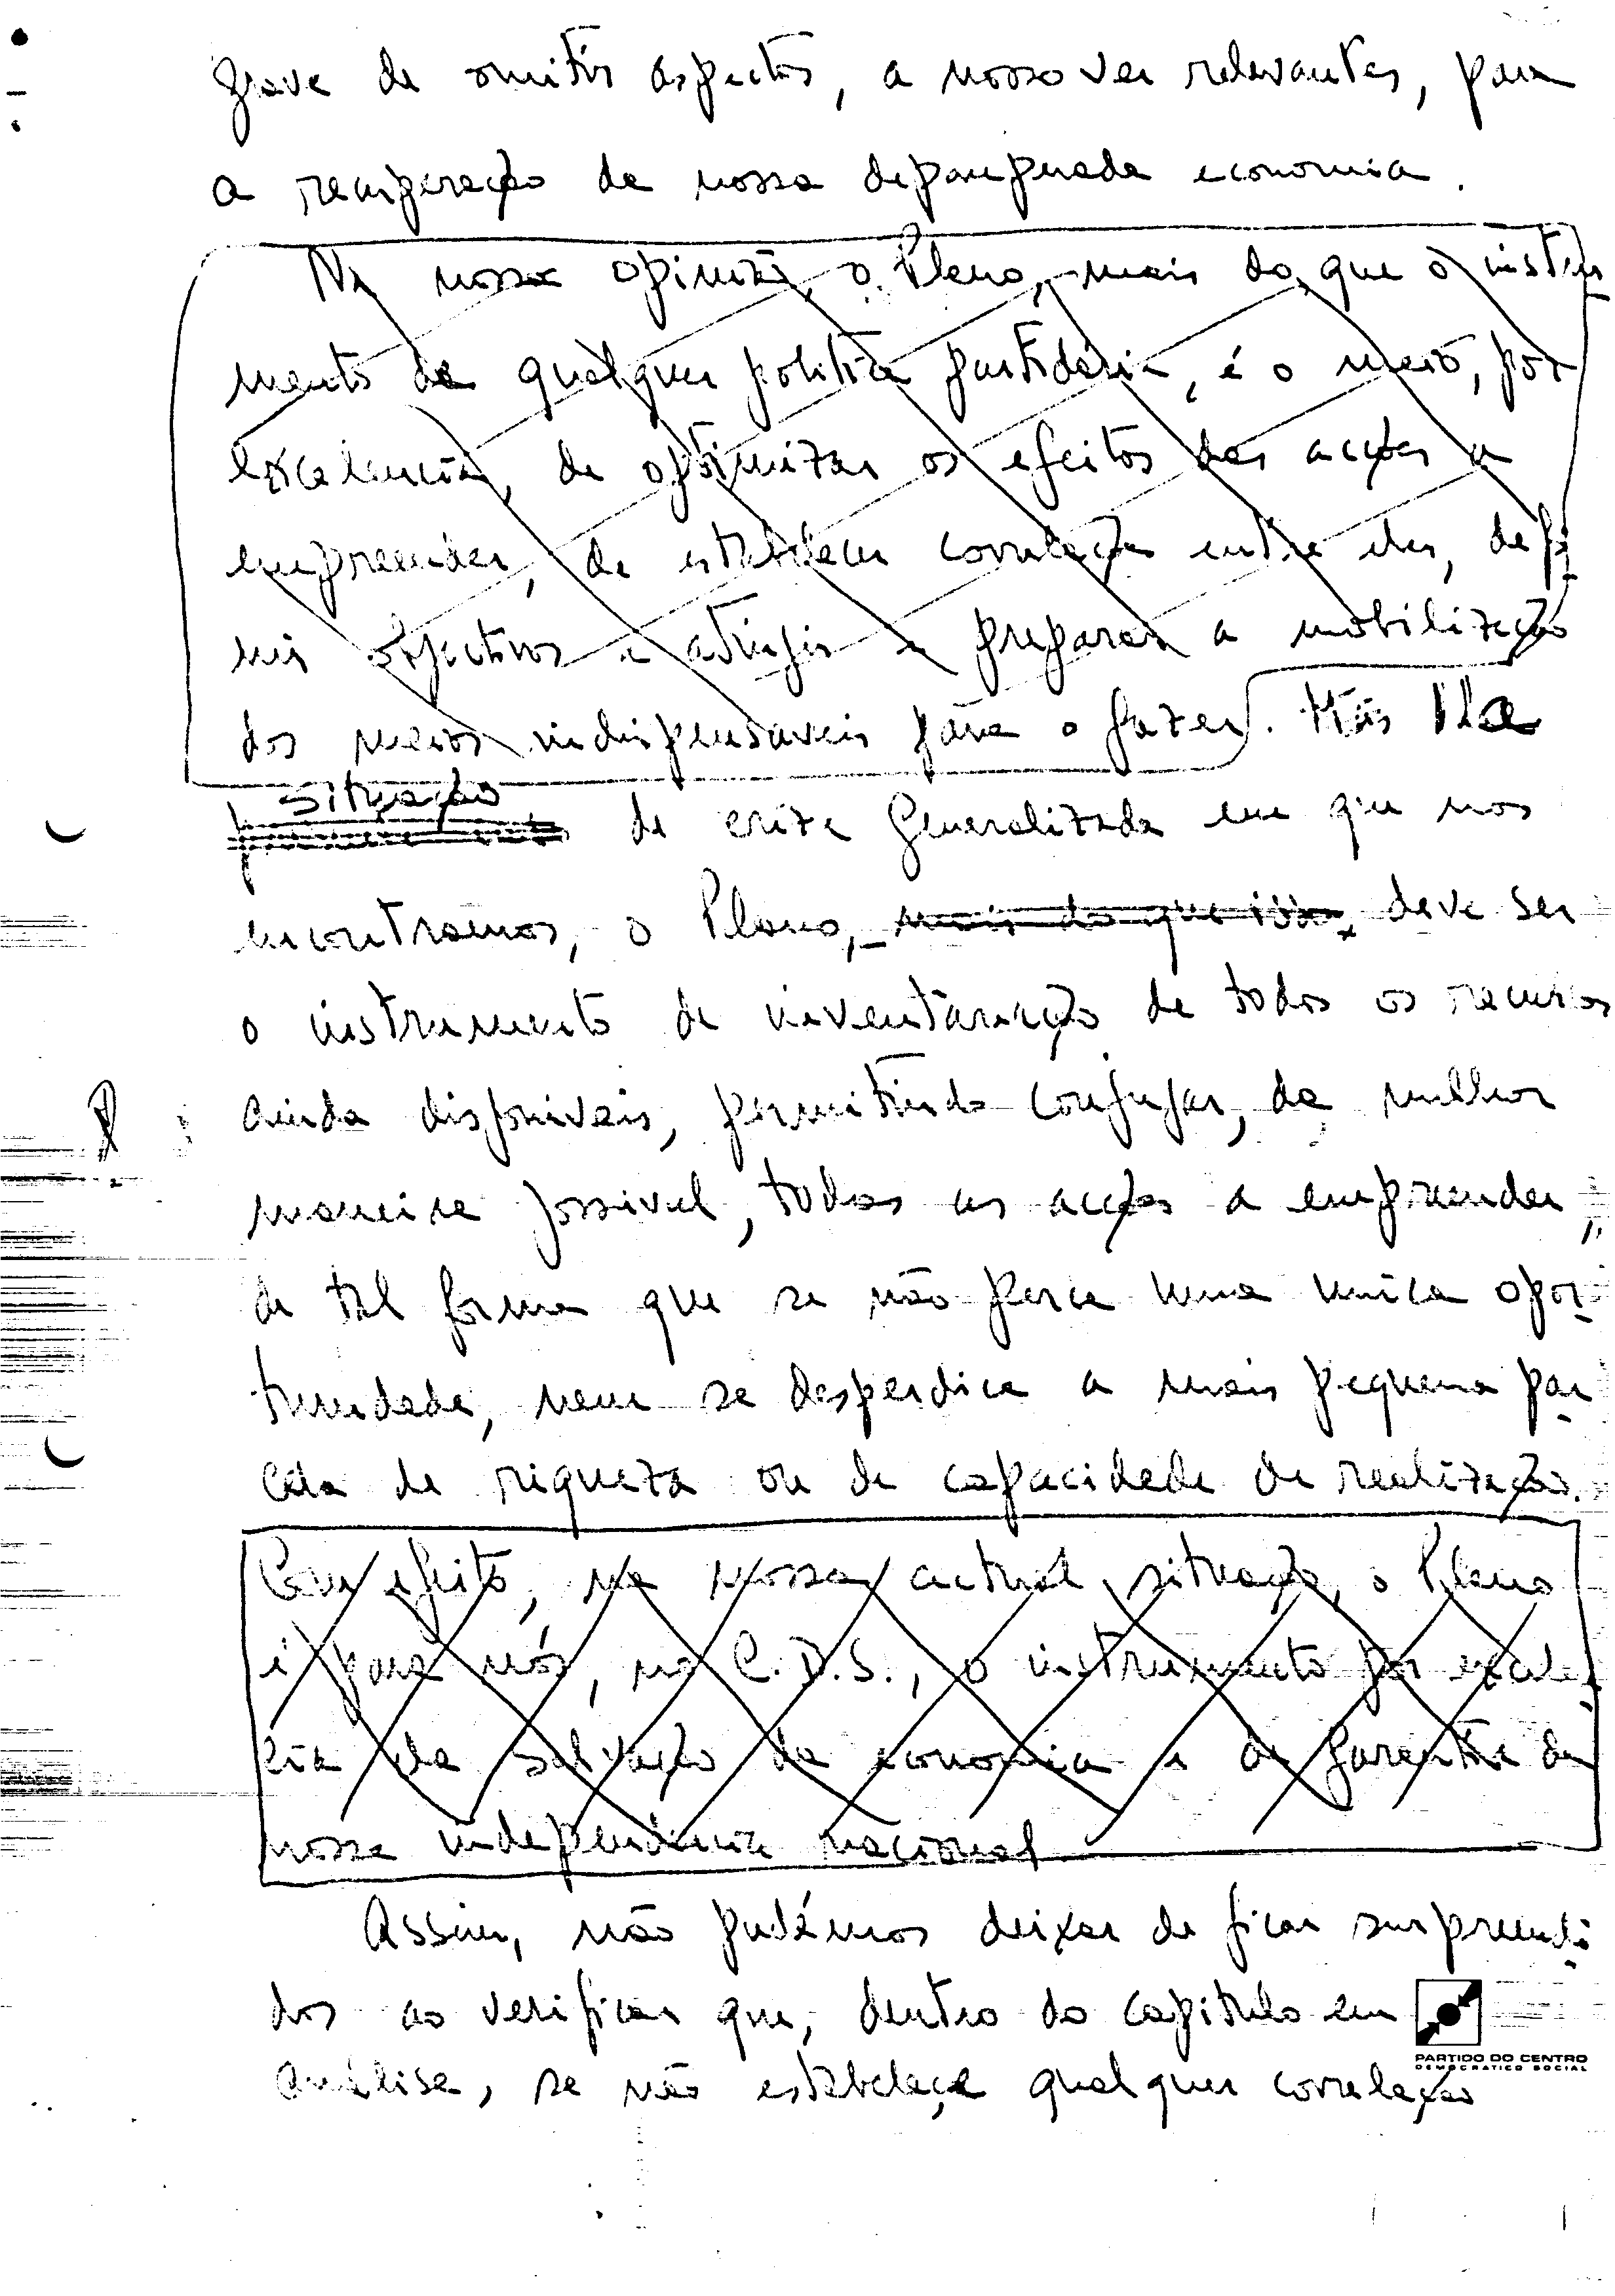 grave de omitir aspectos, a nosso ver relevantes, para
a recuperação da nossa depauperada economia.
Na nossa opinião, o Plano, mais do que o instru
mento de qualquer politica partidária, é o meio, por
excelencia, de optimizar os efeitos das acções a
empreender, de estabelecer correlações entre elas, defi
nir objectivos a atingir e preparar a mobilização
dos meios indispensaveis para o fazer. Na
situação
de crise generalizada em que nos
encontramos, o Plano, mais do que isso, deve ser
o instrumento de inventariação de todos os recursos
ainda disponiveis, permitindo conjugar, da melhor
maneira possivel, todas as acções a empreender,
de tal forma que se não perca uma unica opor-
tunidade, nem se desperdice a mais pequena par
cela de riqueza ou de capacidade de realização.
Com efeito, na nossa actual situação, o Plano
é para nós, no C.D.S., o instrumento por excelen
cia da salvação da economia e da garantia da
nossa independencia nacional
Assim, não podémos deixar de ficar surpreendi
dos ao verificar que, dentro do capitulo em
PARTIDO DO CENTRO
DEMOCRATICO SOCIAL
análise, se não estabeleça qualquer correlação